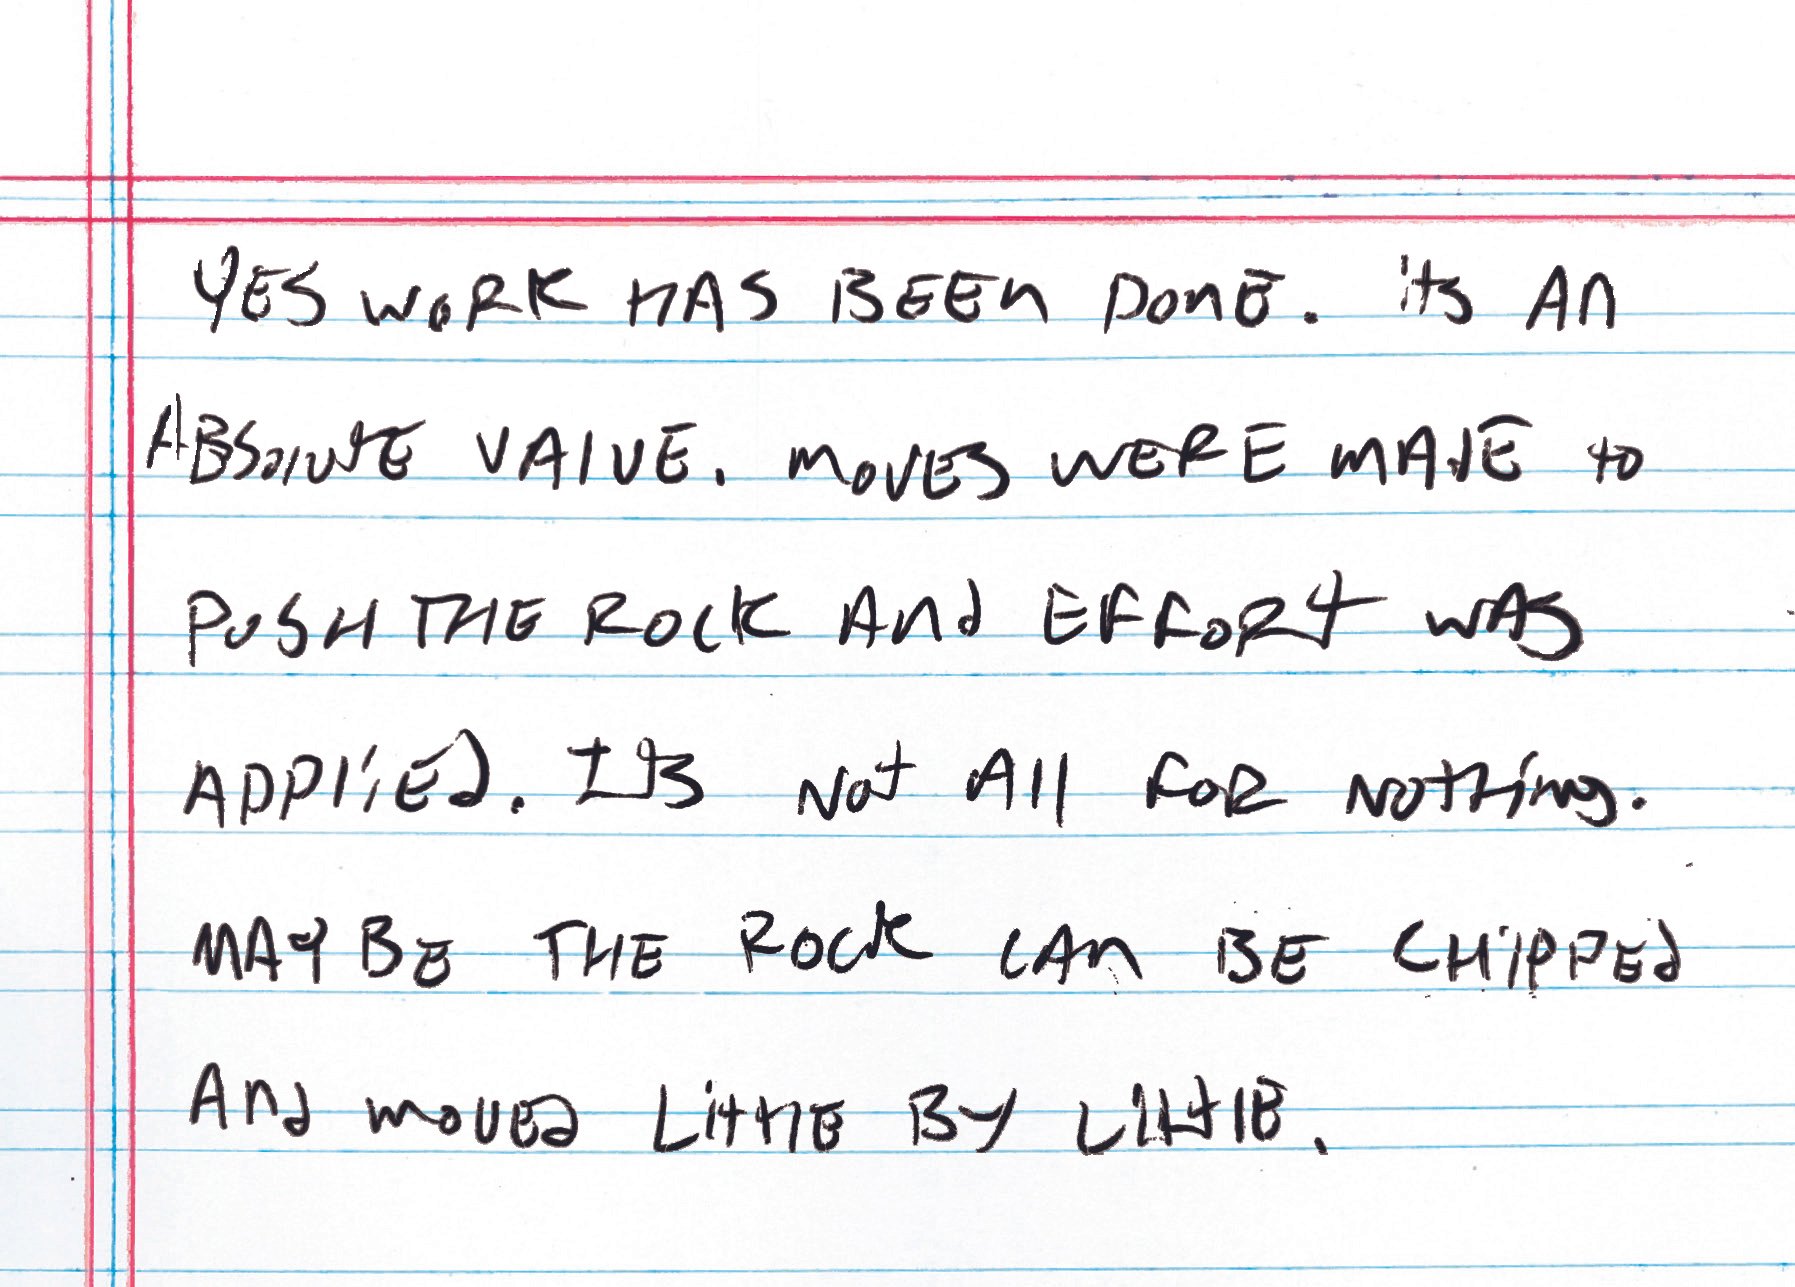 YES WORK HAS BEEN DONE. its AN
ABSOLUTE VALUE. MOVES WERE MADE to
PUSH THE ROCK AND EFFORT WAS
APPLiED. ITS NOT All FOR NOTHing.
MAYBE THE ROCK CAN BE CHiPPED
AND MOVED LittlE BY LittlE.